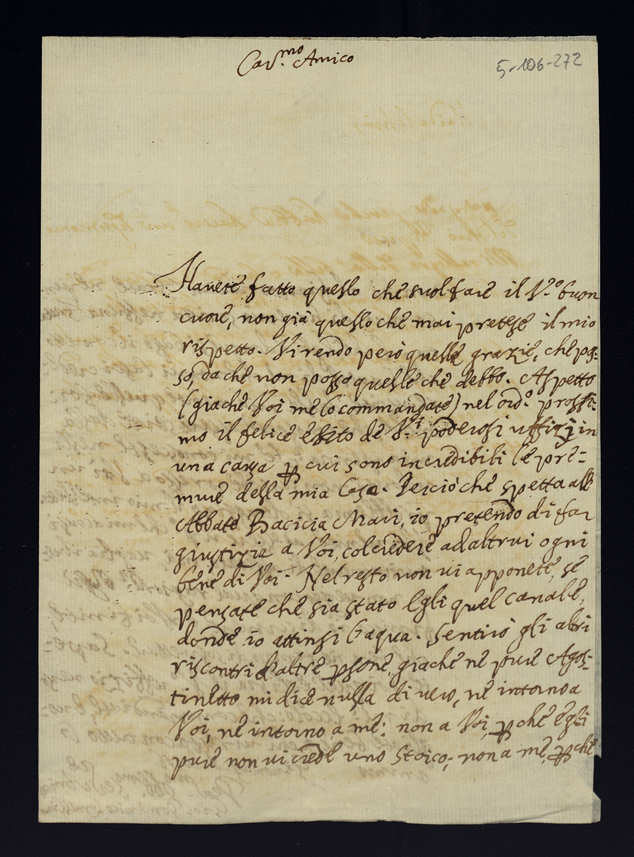 Car.mo Amico
5-106-272
Havete fatto quello che suol fare il V.ro buon
cuore, non già quello che mai pretese il mio
rispetto. Vi rendo però quelle grazie, che pos-
so, da che non posso quelle che debbo. Aspetto
(giache Voi me lo commandate) nel ord.o prossi-
mo il felice esito de V.ri poderosi uffizj in
una causa p cui sono incredibili le pre-
mure della mia Casa. Perciò che spetta all'
Abbate Bacicia Mari, io pretendo di far
giustizia a Voi, col credere ad altrui ogni
bene di Voi. Nel resto non vi apponete, se
pensate che sia stato Egli quel canale,
donde io attinsi l'aqua. Sentirò gli altri
riscontri d'altre psone, giache ne pure Agos-
tinetto mi dice nulla di vero, ne intorno a
Voi, ne intorno a me: non a Voi pche Egli
pure non vi crede uno Stoico; non a me, pche